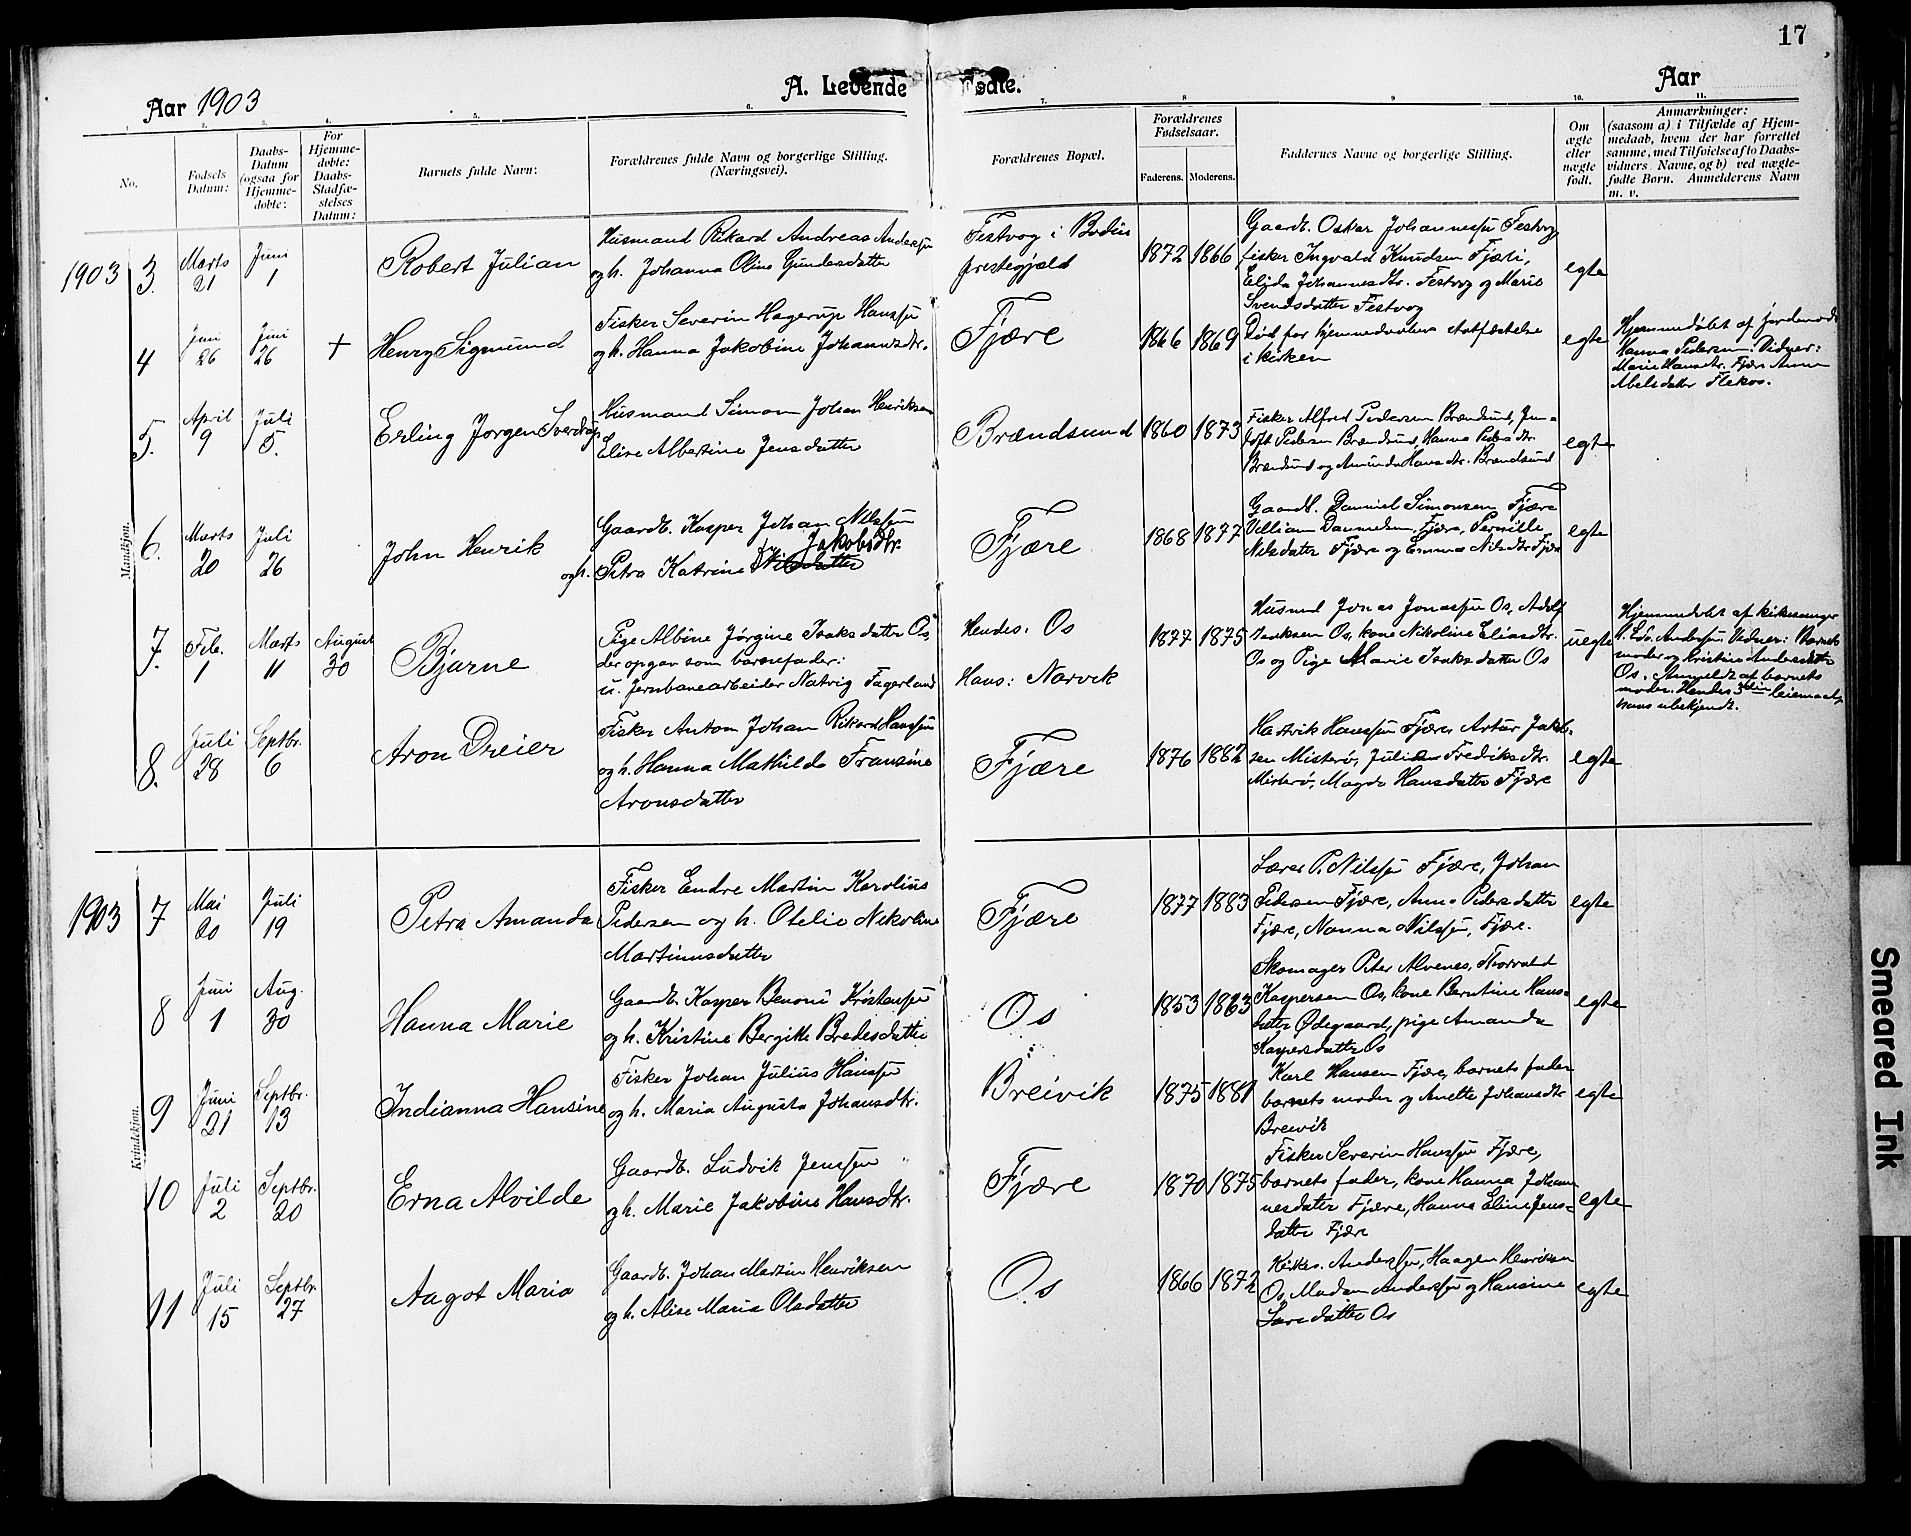 17
Aar 1903
A. Levende Fødte.
Aar
1. 2. 3. 4. 5. 6. 7. 8 9 10. 11.
No.
Fødsels Datum:
Daabs-
Datum
(ogsaa for
Hjemme-
døbte:
For
Hjemme-
døbte:
Daabs-
Stadfæ-
stelses
Datum:
Barnets fulde Navn:
Forældrenes fulde Navn og borgerlige Stilling.
(Næringsvei).
Forældrenes Bopæl.
Forældrenes
Fødselsaar.
Faderens. Moderens.
Faddernes Navne og borgerlige Stilling.
Om
ægte
eller
uægte
født.
Anmærkninger:
(saasom a) i Tilfælde af Hjem-
medaab, hvem der har forrettet
samme, med Tilføielse af to Daabs-
vidners Navne, og b) ved uægte-
fødte Børn. Anmelderens Navn
m. v.
Mandkjøn.
1903 3. Marts 21 Juni 1
Robert Julian
Husmand Rikard Andreas Anderssen
og h. Johanna Oline Gundersdatter
Festvog i Bodin
prestegjeld
1872 1866
Gaardb. Oskar Johannessen Festvog
fisker Ingvald Knudsen Fjæri,
Elida Johannesdtr. Festvog og Marie
Svendsdatter Festvog
egte
4 Juni 26 Juni 26 +
Henry Sigmund
Fisker Severin Hagerup Hanssen
og h. Hanna Jakobine Johannesdtr.
Fjære
1866 1869
Død før hjemmedaabens stadfæstelse
i kirken
egte
Hjemmedøbt af jordemoder
Hanna Pedersen. Vidner:
Marie Hansdtr. Fjære Anna
Abelsdatter Flekos.
5. April 9 Juli 5.
Erling Jorgen Sverdrup
Husmand Simon Johan Henriksen
Elise Albertine Jensdatter
Brændsund
1860 1873
Fisker Alfred Pedersen Brændsund, Jen-
toft Pedersen Brændsund, Hanna Pedersdtr.
Brændsund og Amanda Hansdtr. Brændsund
egte
6. Marts 20 Juli 26
John Henrik
Gaardb. Kasper Johan Nilssen
Jakobsdtr.
og h. Petra Katrine Nilsdatter
Fjære
1868 1877
Gaardb. Daniel Simonsen Fjære
Villiam Danielsen, Fjære, Pernille
Nilsdatter Fjære og Emma Nilsdtr Fjære
egte
7. Feb. 1 Marts 11 August 30
Bjarne
Pige Albine Jørgine Isaksdatter Os,
der opgav som barnefader:
u. Jernbanearbeider Natvig Fagerland
Hendes: Os
Hans: Narvik
1877 1875
Husmd Jonas Jonassen Os, Adolf
Isaksen Os, kone Nikoline Eliasdtr.
Os og Pige Marie Isaksdatter Os
uegte
Hjemmedøbt af kirkesanger
Edv. Anderssen. Vidner: Barnets
moder og Kristine Andersdatter
Os. Anmeldt af barnets
moder. Hendes 3die leiermaal,
hans ubekjendt.
8. Juli 28 Septbr. 6
Aron Dreier
Fisker Anton Johan Rikard Hanssen
og h. Hanna Mathilde Fransine
Aronsdatter
Fjære
1876 1882
Hartvik Hanssen Fjære, Artur Jakob-
sen Misterø, Julie Frediksdtr.
Misterø, Magda Hansdatter Fjære
egte
Kvindekjøn.
1903 7 Mai 20 Juli 19
Petra Amanda
Fisker Endre Martin Karolius
Pedersen og h. Otelie Nikoline
Martinusdatter
Fjære
1877 1883
Lærer P. Nilssen Fjære, Johan
Pedersen Fjære, Anna Pedersdatter
Fjære, Nanna Nilssen, Fjære.
egte
8 Juni 1 Aug. 30
Hanna Marie
Gaardb. Kasper Benoni Kristensen
og h. Kristine Bergitte Bredesdatter
Os
1853 1863
Skomager Peter Alvenes, Thorvald
Kaspersen Os, kone Berntine Hans-
datter Ødegaard, pige Amanda
Kaspersdatter Os
egte
9 Juni 21 Septbr. 13
Indianna Hansine
Fisker Johan Julius Hanssen
og h. Maria Augusta Johansdtr.
Breivik
1875 1881
Karl Hansen Fjære, barnets fader
barnets moder og Anette Johansdtr
Breivik
egte
10 Juli 2 Septbr. 20
Erna Alvilde
Gaardb. Ludvik Jenssen
og h. Marie Jakobine Hansdtr.
Fjære
1870 1875
Fisker Severin Hanssen Fjære,
barnets fader, kone Hanna Johan-
nesdatter Fjære, Hanna Eline Jens-
datter Fjære
egte
11 Juli 15 Septbr. 27
Aagot Maria
Gaardb. Johan Martin Henriksen
og h. Alise Maria Olsdatter
Os
1866 1872
Kirkes. Anderssen, Haagen Henriksen
Os, Madam Anderssen og Hansine
Larsdatter Os
egte
Smeared Ink